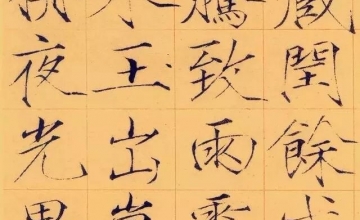 藏閏餘成
騰致雨露
水玉出崑
夜光果